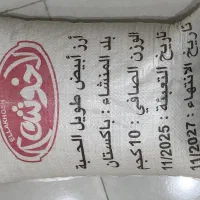 أرز أبيض طويل الحبة
بلد المنشاء : باكستان
الوزن الصافي : 10 كجم
تاريخ التعبئة : 11/2025
تاريخ الانتهاء : 11/2027